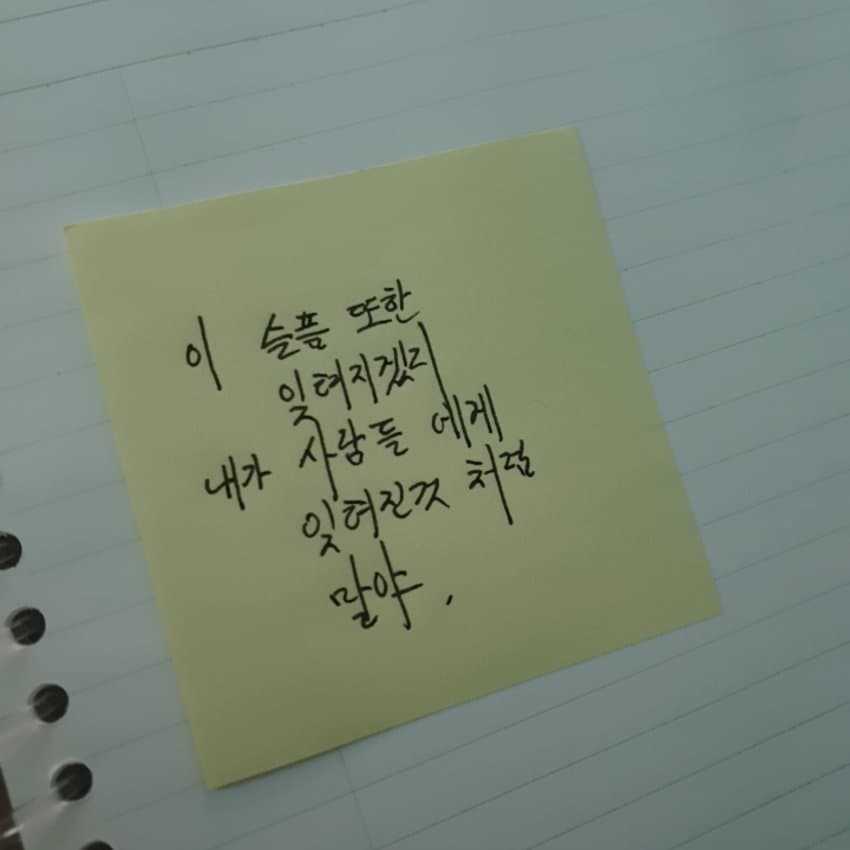 이 슬픔 또한
잊혀지겠지
내가 사람들 에게
잊혀진것 처럼
말야.